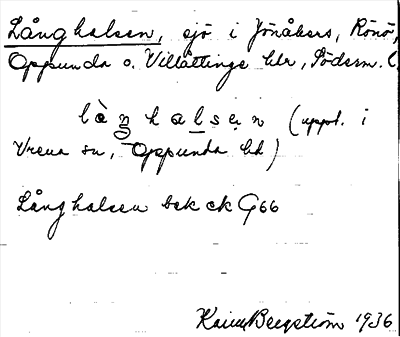 Långhalsen, sjö i Jönåkers, Rönö,
Oppunda o. Villåttinge hdr, Söderm. l.
làŋhalsen (uppt. i
Vrena sn, Oppunda hd)
Långhalsen bek ck G66
Karin Bergström 1936